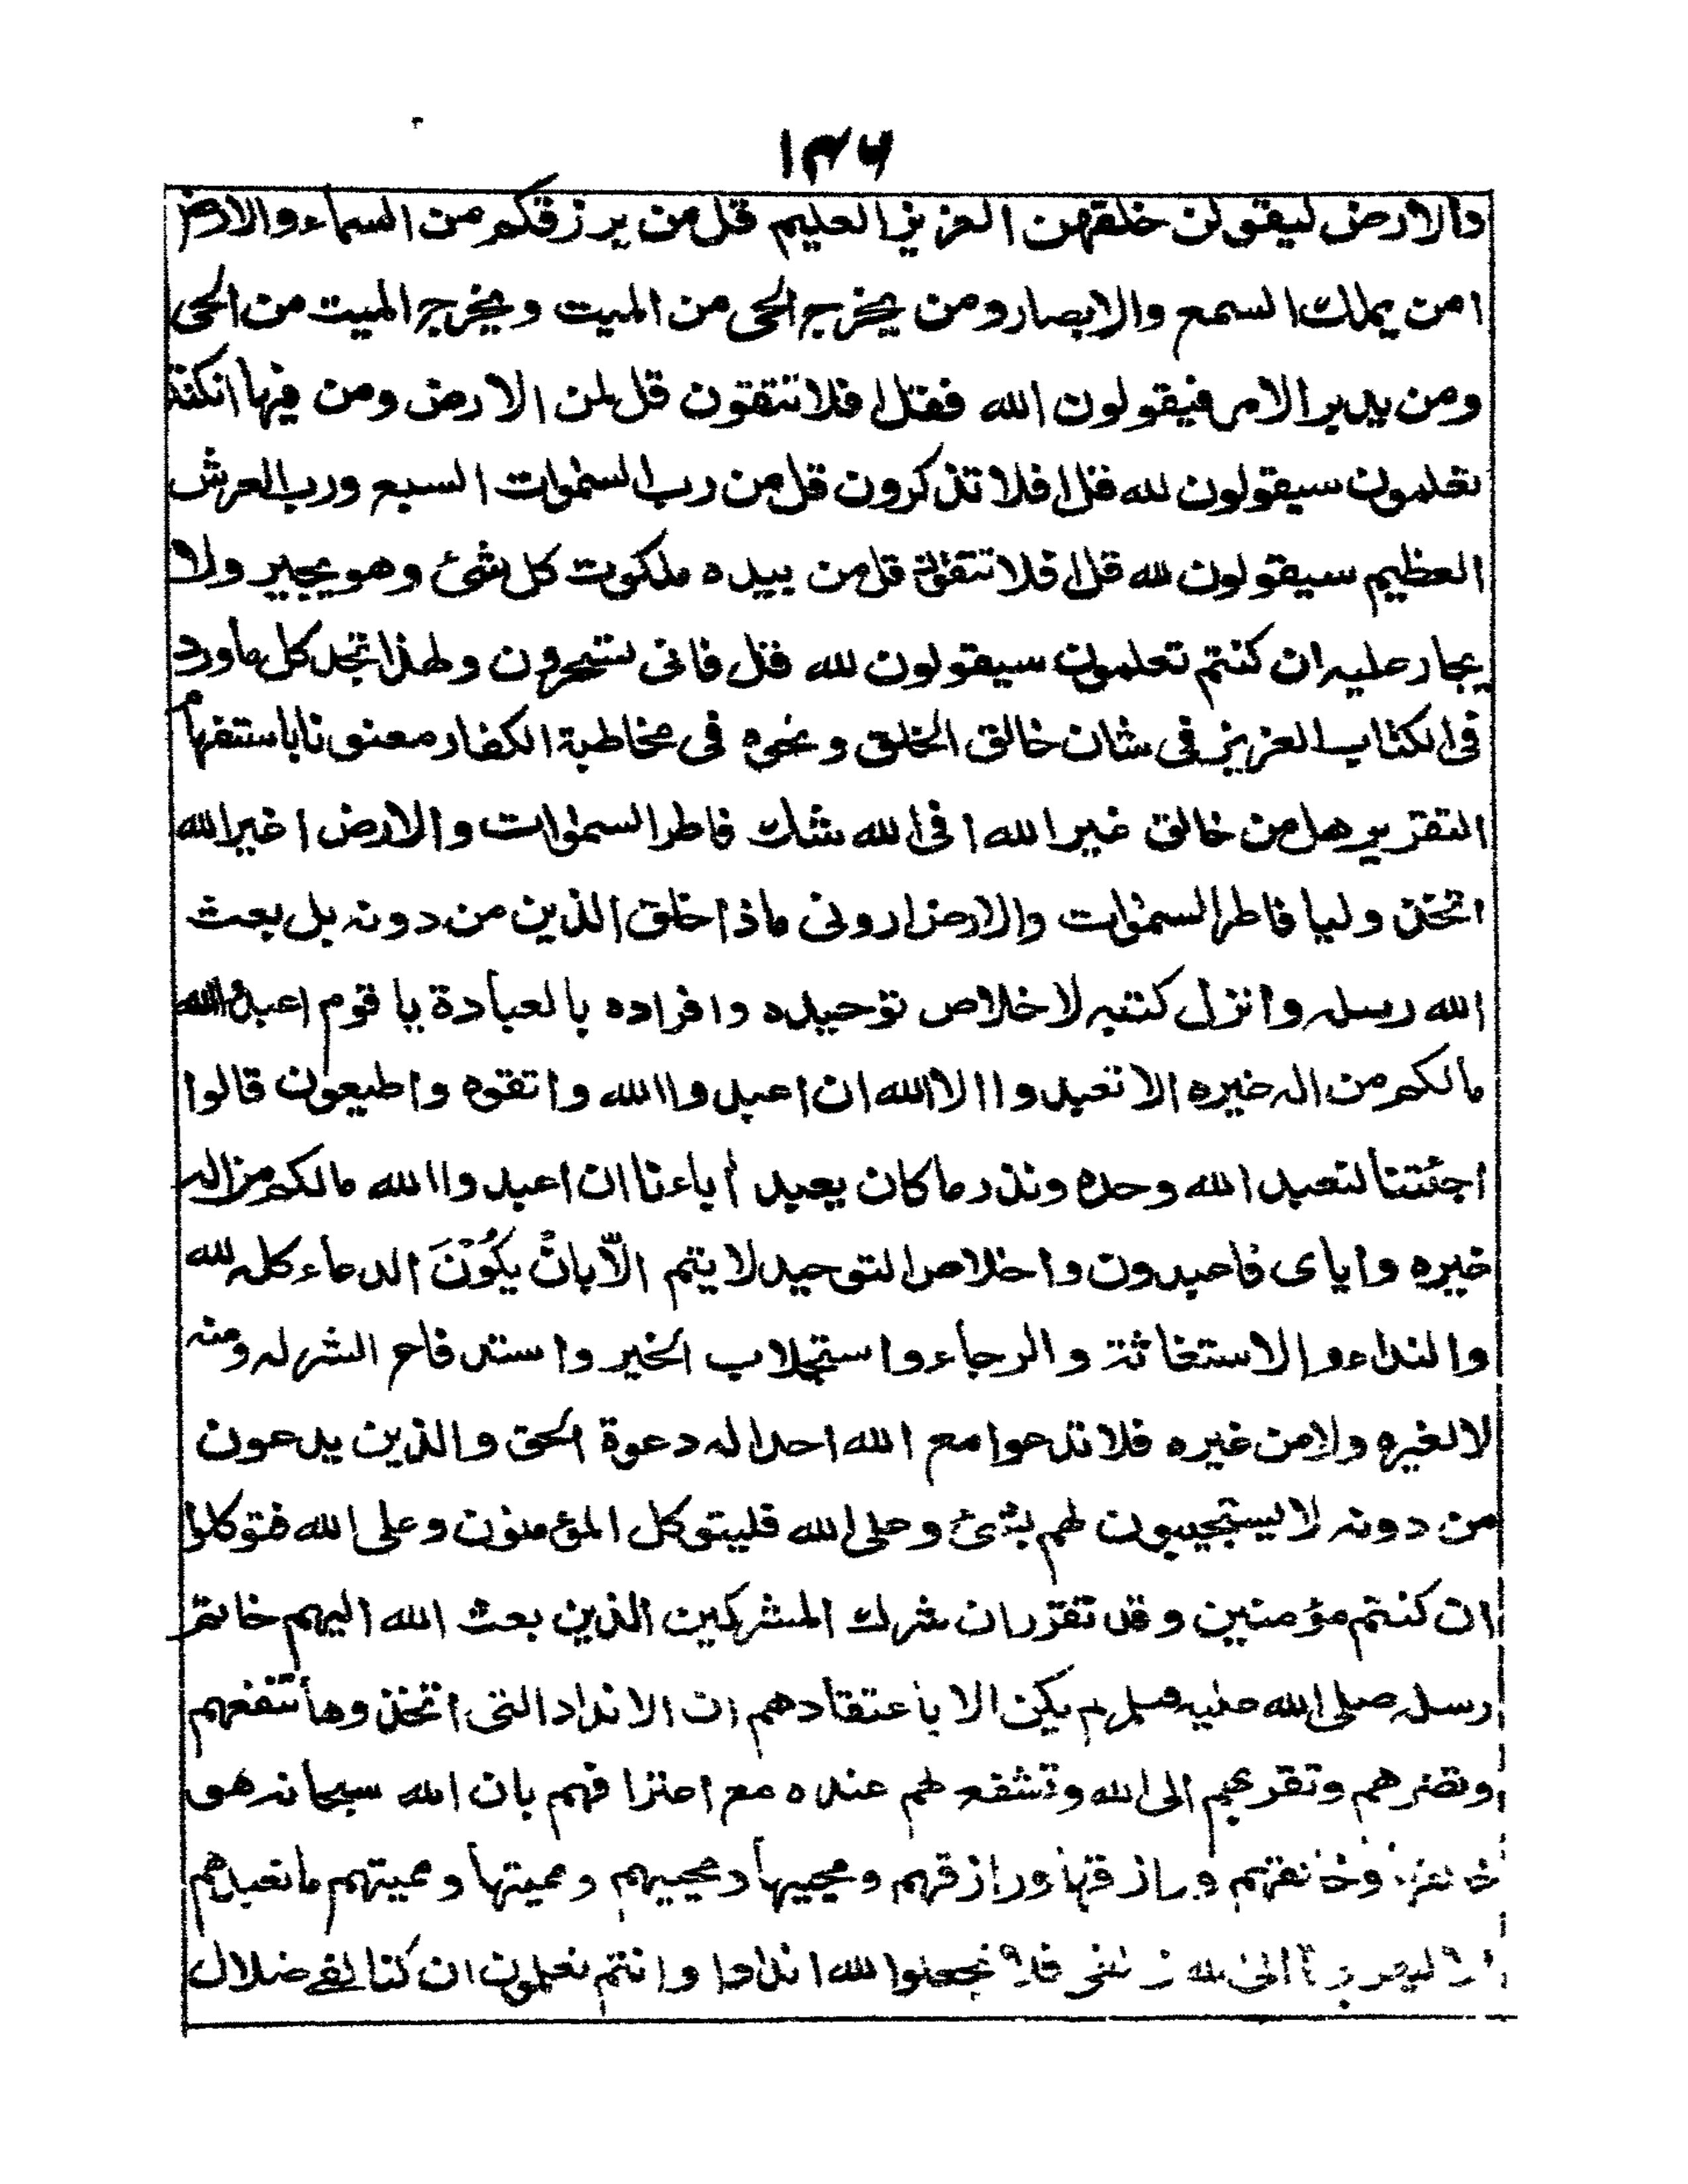 ١٣٦
والارض ليقولن خلقهن العزيز العليم قل من يرزقكم من السماء والارض
امن يملك السمع والابصار ومن يخرج الحى من الميت ويخرج الميت من الحى
ومن يدبر الامر فيقولون الله فقل افلا تتقون قل لمن الارض ومن فيها ان كنتم
تعلمون سيقولون لله قل افلا تذكرون قل من رب السمٰوات السبع ورب العرش
العظيم سيقولون لله قل افلا تتقون قل من بيده ملكوت كل شئ وهو يجير ولا
يجار عليه ان كنتم تعلمون سيقولون لله قل فانى تسحرون ولهذا تجد كل ما ورد
فى الكتاب العزيز فى شان خالق الخلق ونحوه فى مخاطبة الكفار معنونا باستفهام
التقرير هل من خالق غير الله افى الله شك فاطر السمٰوات والارض اغير الله
اتخذ وليا فاطر السمٰوات والارض ارونى ماذا خلق الذين من دونه بل بعث
الله رسله وانزل كتبه لاخلاص توحيده وافراده بالعبادة يا قوم اعبدوا الله
مالكم من اله غيره الا تعبدوا الا الله ان اعبدوا الله واتقوه واطيعون قالوا
اجئتنا لنعبد الله وحده ونذر ما كان يعبد اٰباءنا ان اعبدوا الله مالكم من اله
غيره واياى فاعبدون واخلاص التوحيد لا يتم الّا بانْ يكُوْنَ الدعاء كله لله
والنداء والاستغاثة والرجاء واستجلاب الخير واستدفاع الشر له ومنه
لا لغيره ولا من غيره فلا تدعوا مع الله احدا له دعوة الحق والذين يدعون
من دونه لا يستجيبون لهم بشئ وعلى الله فليتوكل المؤمنون وعلى الله فتوكلوا
ان كنتم مؤمنين وقد تقرر ان شرك المشركين الذين بعث الله اليهم خاتم
رسله صلى الله عليه وسلم لم يكن الا باعتقادهم ان الانداد التى اتخذوها تنفعهم
وتضرهم وتقربهم الى الله وتشفع لهم عنده مع اعترافهم بان الله سبحانه هو
خالقها وخالقهم ورازقها ورازقهم ومحييها ومحييهم ومميتها ومميتهم ما نعبدهم
الا ليقربونا الى الله زلفى فلا تجعلوا لله اندادا وانتم تعلمون ان كنا لفى ضلال